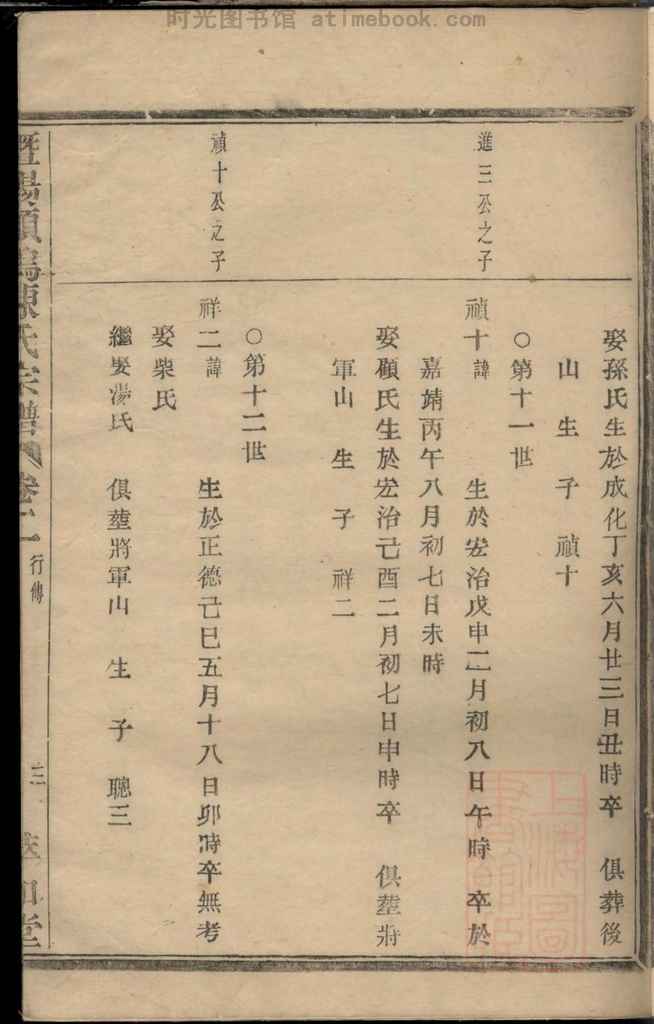 时光图书馆 - atimebook.com
娶孫氏生於成化丁亥六月廿三日丑時卒 俱葬後
山 生 子 禎十
○第十一世
進三公之子
禎十 諱 生於宏治戊申二月初八日午時 卒於
嘉靖丙午八月初七日未時
娶顧氏生於宏治己酉二月初七日申時卒 俱塟將
軍山 生 子 祥二
○第十二世
禎十公之子
祥二 諱 生於正德己巳五月十八日卯時卒無考
娶柴氏
繼娶湯氏 俱塟將軍山 生 子 聰三
氏宗譜 卷二 行傳 三